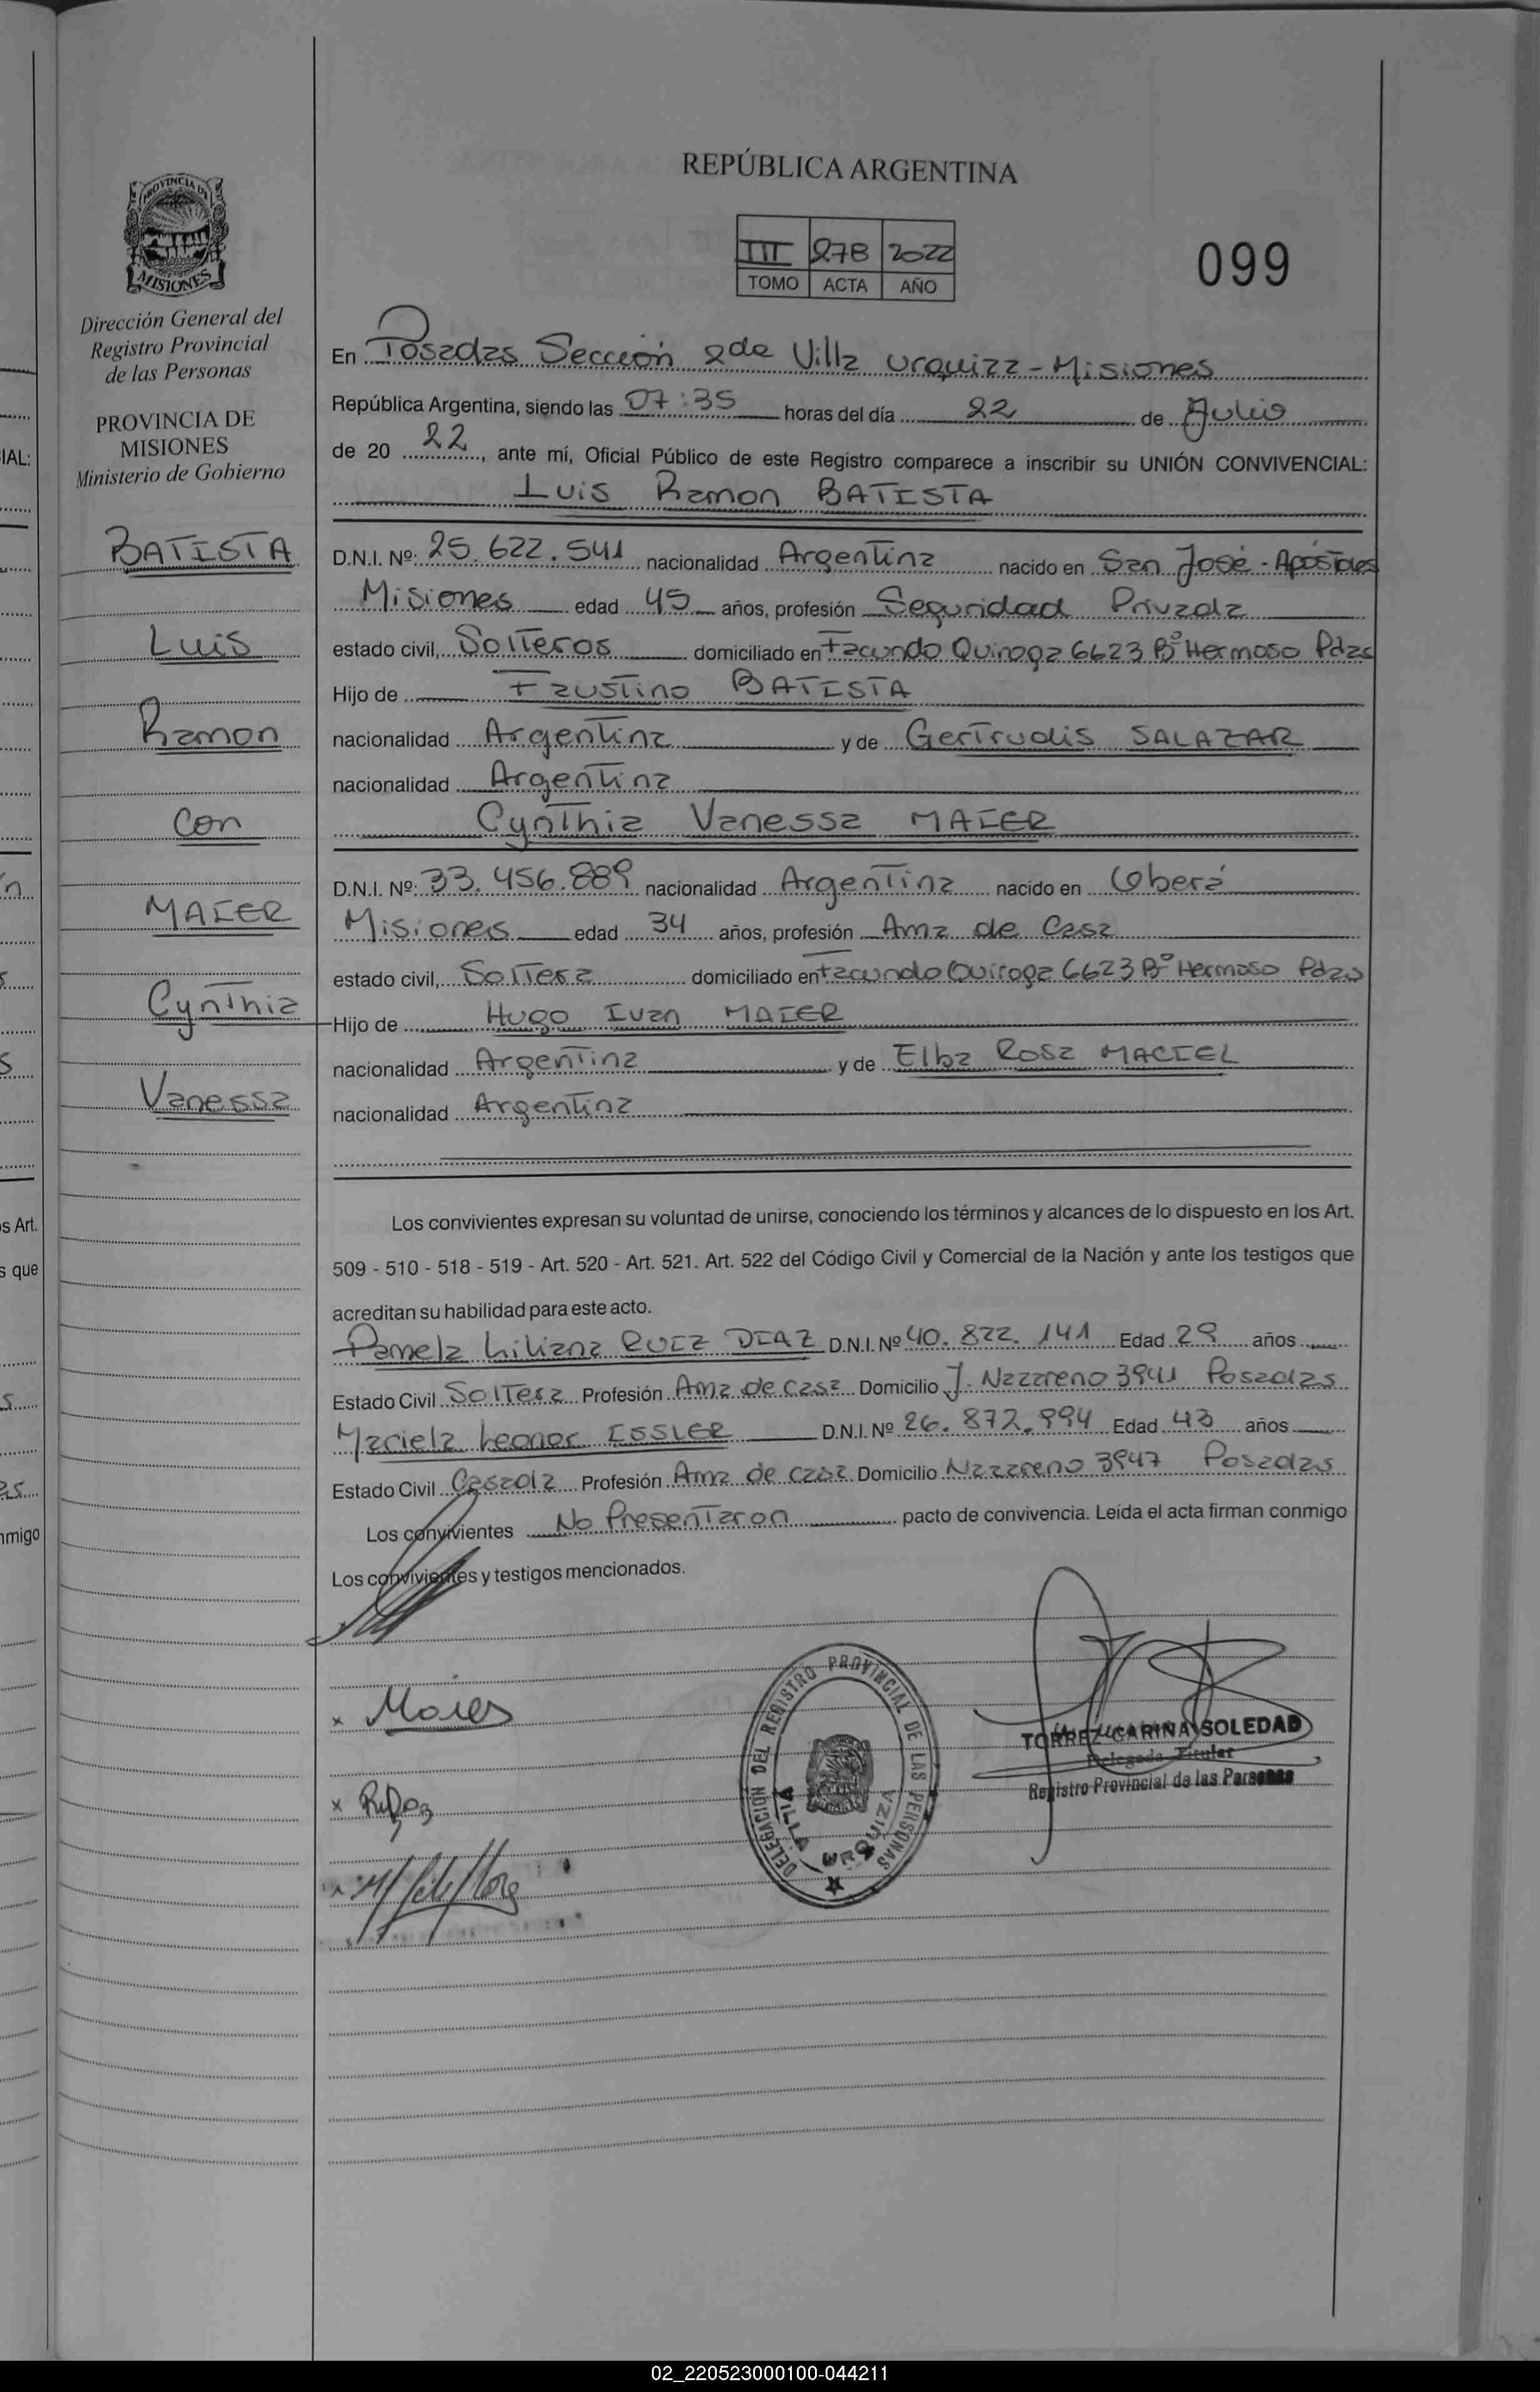 REPÚBLICA ARGENTINA
III 278 2022
TOMO ACTA AÑO
099
PROVINCIA DE
MISIONES
Dirección General del
Registro Provincial
de las Personas
PROVINCIA DE
MISIONES
Ministerio de Gobierno
BATISTA
Luis
Ramon
con
MAIER
Cynthia
Vanessa
En Posadas Sección 2da Villa Urquiza - Misiones
República Argentina, siendo las 07:35 horas del día 22 de Julio
de 20 22, ante mí, Oficial Público de este Registro comparece a inscribir su UNIÓN CONVIVENCIAL:
Luis Ramon BATISTA
D.N.I. Nº: 25.622.541 nacionalidad Argentina nacido en San José - Apóstoles
Misiones edad 45 años, profesión Seguridad Privada
estado civil, Solteros domiciliado en Facundo Quiroga 6623 Bº Hermoso Pdas
Hijo de Faustino BATISTA
nacionalidad Argentina y de Gertrudis SALAZAR
nacionalidad Argentina
Cynthia Vanessa MAIER
D.N.I. Nº: 33.456.889 nacionalidad Argentina nacido en Oberá
Misiones edad 34 años, profesión Ama de Casa
estado civil, Soltera domiciliado en Facundo Quiroga 6623 Bº Hermoso Pdas
Hijo de Hugo Ivan MAIER
nacionalidad Argentina y de Elba Rosa MACIEL
nacionalidad Argentina
Los convivientes expresan su voluntad de unirse, conociendo los términos y alcances de lo dispuesto en los Art.
509 - 510 - 518 - 519 - Art. 520 - Art. 521. Art. 522 del Código Civil y Comercial de la Nación y ante los testigos que
acreditan su habilidad para este acto.
Pamela Liliana RUIZ DIAZ D.N.I. Nº 40.822.141 Edad 29 años
Estado Civil Soltera Profesión Ama de casa Domicilio J. Nazareno 3941 Posadas
Mariela Leonor ISSLER D.N.I. Nº 26.872.994 Edad 43 años
Estado Civil Casada Profesión Ama de casa Domicilio Nazareno 3947 Posadas
Los convivientes No Presentaron pacto de convivencia. Leída el acta firman conmigo
Los convivientes y testigos mencionados.
x Maier
DELEGACIÓN DEL REGISTRO PROVINCIAL DE LAS PERSONAS
VILLA URQUIZA
TORREZ CARINA SOLEDAD
Delegada Titular
Registro Provincial de las Personas
IAL:
s Art.
s que
nmigo
02_220523000100-044211